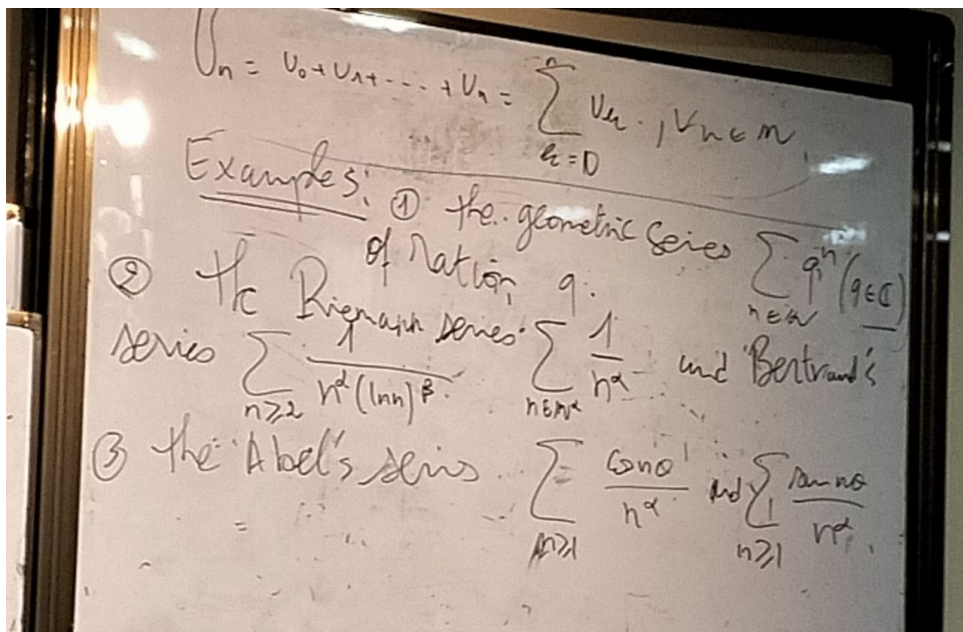 Uₙ = U₀ + U₁ + --- + Uₙ = ∑_{k=0}^{n} Uₖ , ∀n∈ℕ
Examples: ① the geometric series ∑_{n∈ℕ} qⁿ (q∈ℂ)
of ration q.
② The Riemann series ∑_{n∈ℕ*} 1/n^α and Bertrand's
series ∑_{n≥2} 1/(n^α (ln n)^β).
③ the Abel's series ∑_{n≥1} cos nθ / n^α and ∑_{n≥1} sin nθ / n^α.